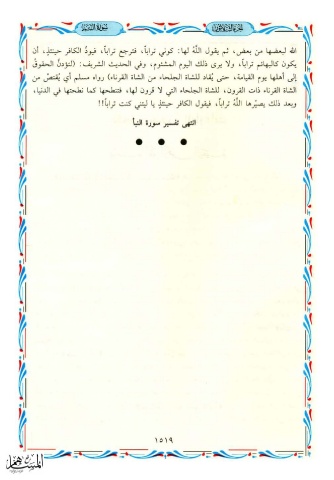 الله لبعضها من بعض، ثم يقول اللَّهُ لها: كوني تراباً، فترجع تراباً، فيودُّ الكافر حينئذٍ، أن
يكون كالبهائم تراباً، ولا يرى ذلك اليوم المشئوم، وفي الحديث الشريف: (لتؤدُنَّ الحقوقُ
إلى أهلها يوم القيامة، حتى يُقاد للشاة الجلحاء من الشاة القرناء) رواه مسلم أي يُقتصُّ من
الشاة القرناء ذات القرون، للشاة الجلحاء التي لا قرون لها، فتنطحها كما نطحتها في الدنيا،
وبعد ذلك يصيّرها اللَّهُ تراباً، فيقول الكافر حينئذٍ يا ليتني كنت تراباً!!
انتهى تفسير سورة النبأ
١٥١٩